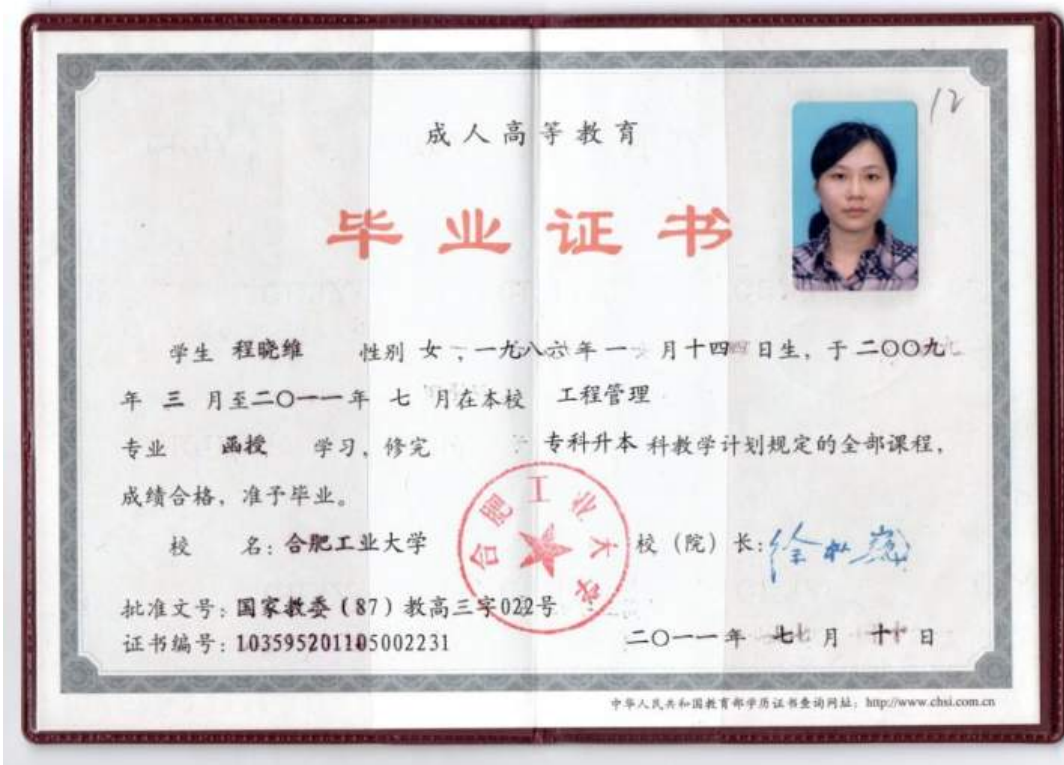 12
成人高等教育
毕业证书
学生 程晓维 性别 女，一九八六年一月十四日生，于二〇〇九
年 三 月至二〇一一年 七 月在本校 工程管理
专业 函授 学习，修完 专科升本 科教学计划规定的全部课程，
成绩合格，准予毕业。
校 名：合肥工业大学 校（院）长：
合肥工业大学
批准文号：国家教委（87）教高三字022号
证书编号：103595201105002231 二〇一一年 七月 十日
中华人民共和国教育部学历证书查询网址：http://www.chsi.com.cn